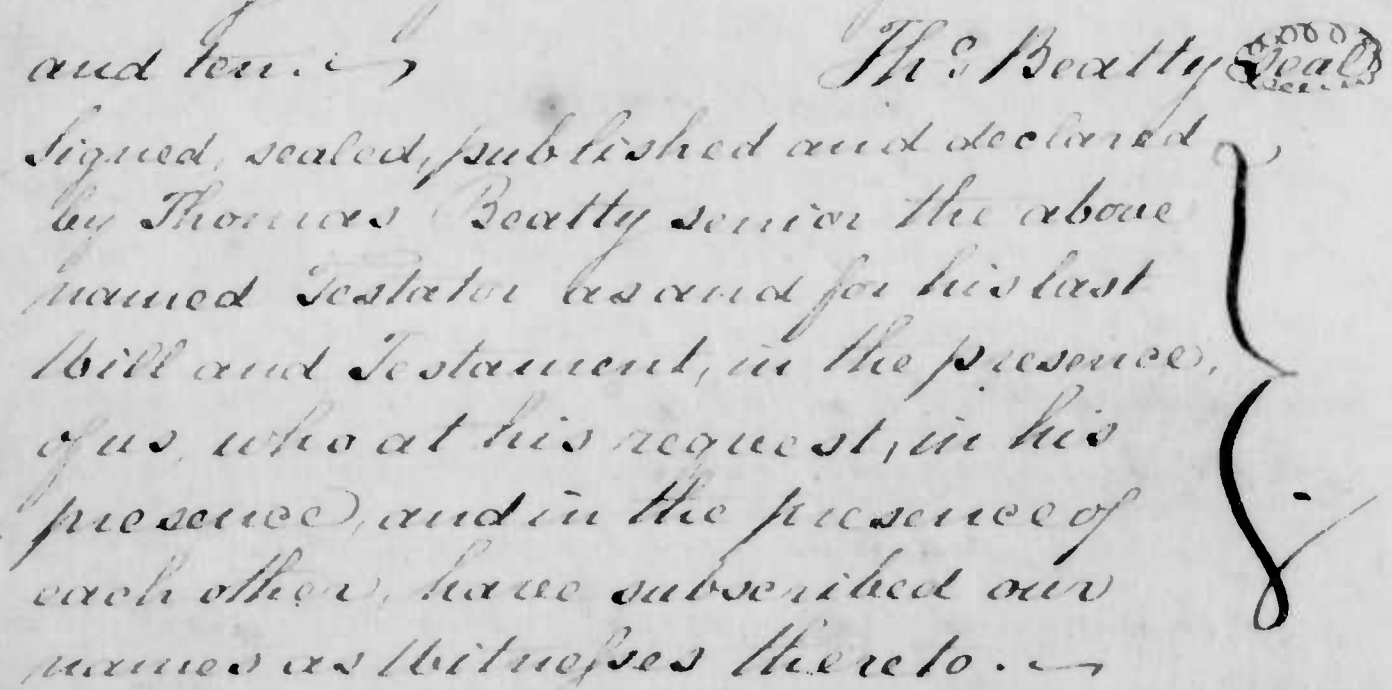 and ten. Ths Beatty Seal
Signed, sealed, published and declared
by Thomas Beatty senior the above
named Testator as and for his last
Will and Testament, in the presence,
of us, who at his request, in his
presence, and in the presence of
each other, have subscribed our
names as Witneſses thereto.